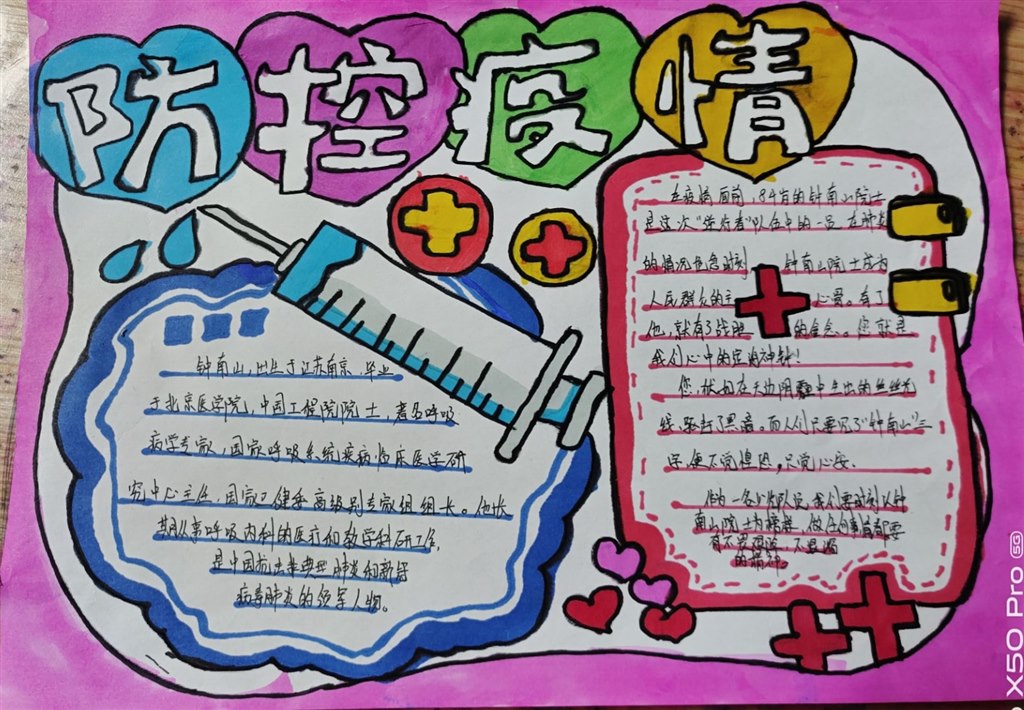 防控疫情
钟南山,出生于江苏南京,毕业
于北京医学院,中国工程院院士,著名呼吸
病学专家,国家呼吸系统疾病临床医学研
究中心主任,国家卫健委高级别专家组组长。他长
期从事呼吸内科的医疗和教学科研工作,
是中国抗击非典型肺炎和新冠
病毒肺炎的领军人物。
在疫情面前,84岁的钟南山院士
是这次“逆行者”队伍中的一员,在肺炎
的情况危急时刻 钟南山院士成为
人民群众的主心骨。有了
他,就有了战胜 的信念。您就是
我们心中的定海神针!
您,犹如在天边阴霾中生出的丝丝光
线,驱赶了黑暗。而人们只要见了“钟南山”三
字,便不觉惶恐,只觉心安。
作为一名少先队员,我们要时刻以钟
南山院士为榜样,做任何事情都要
有不畏艰难,不退缩
的精神。
X50 Pro 5G